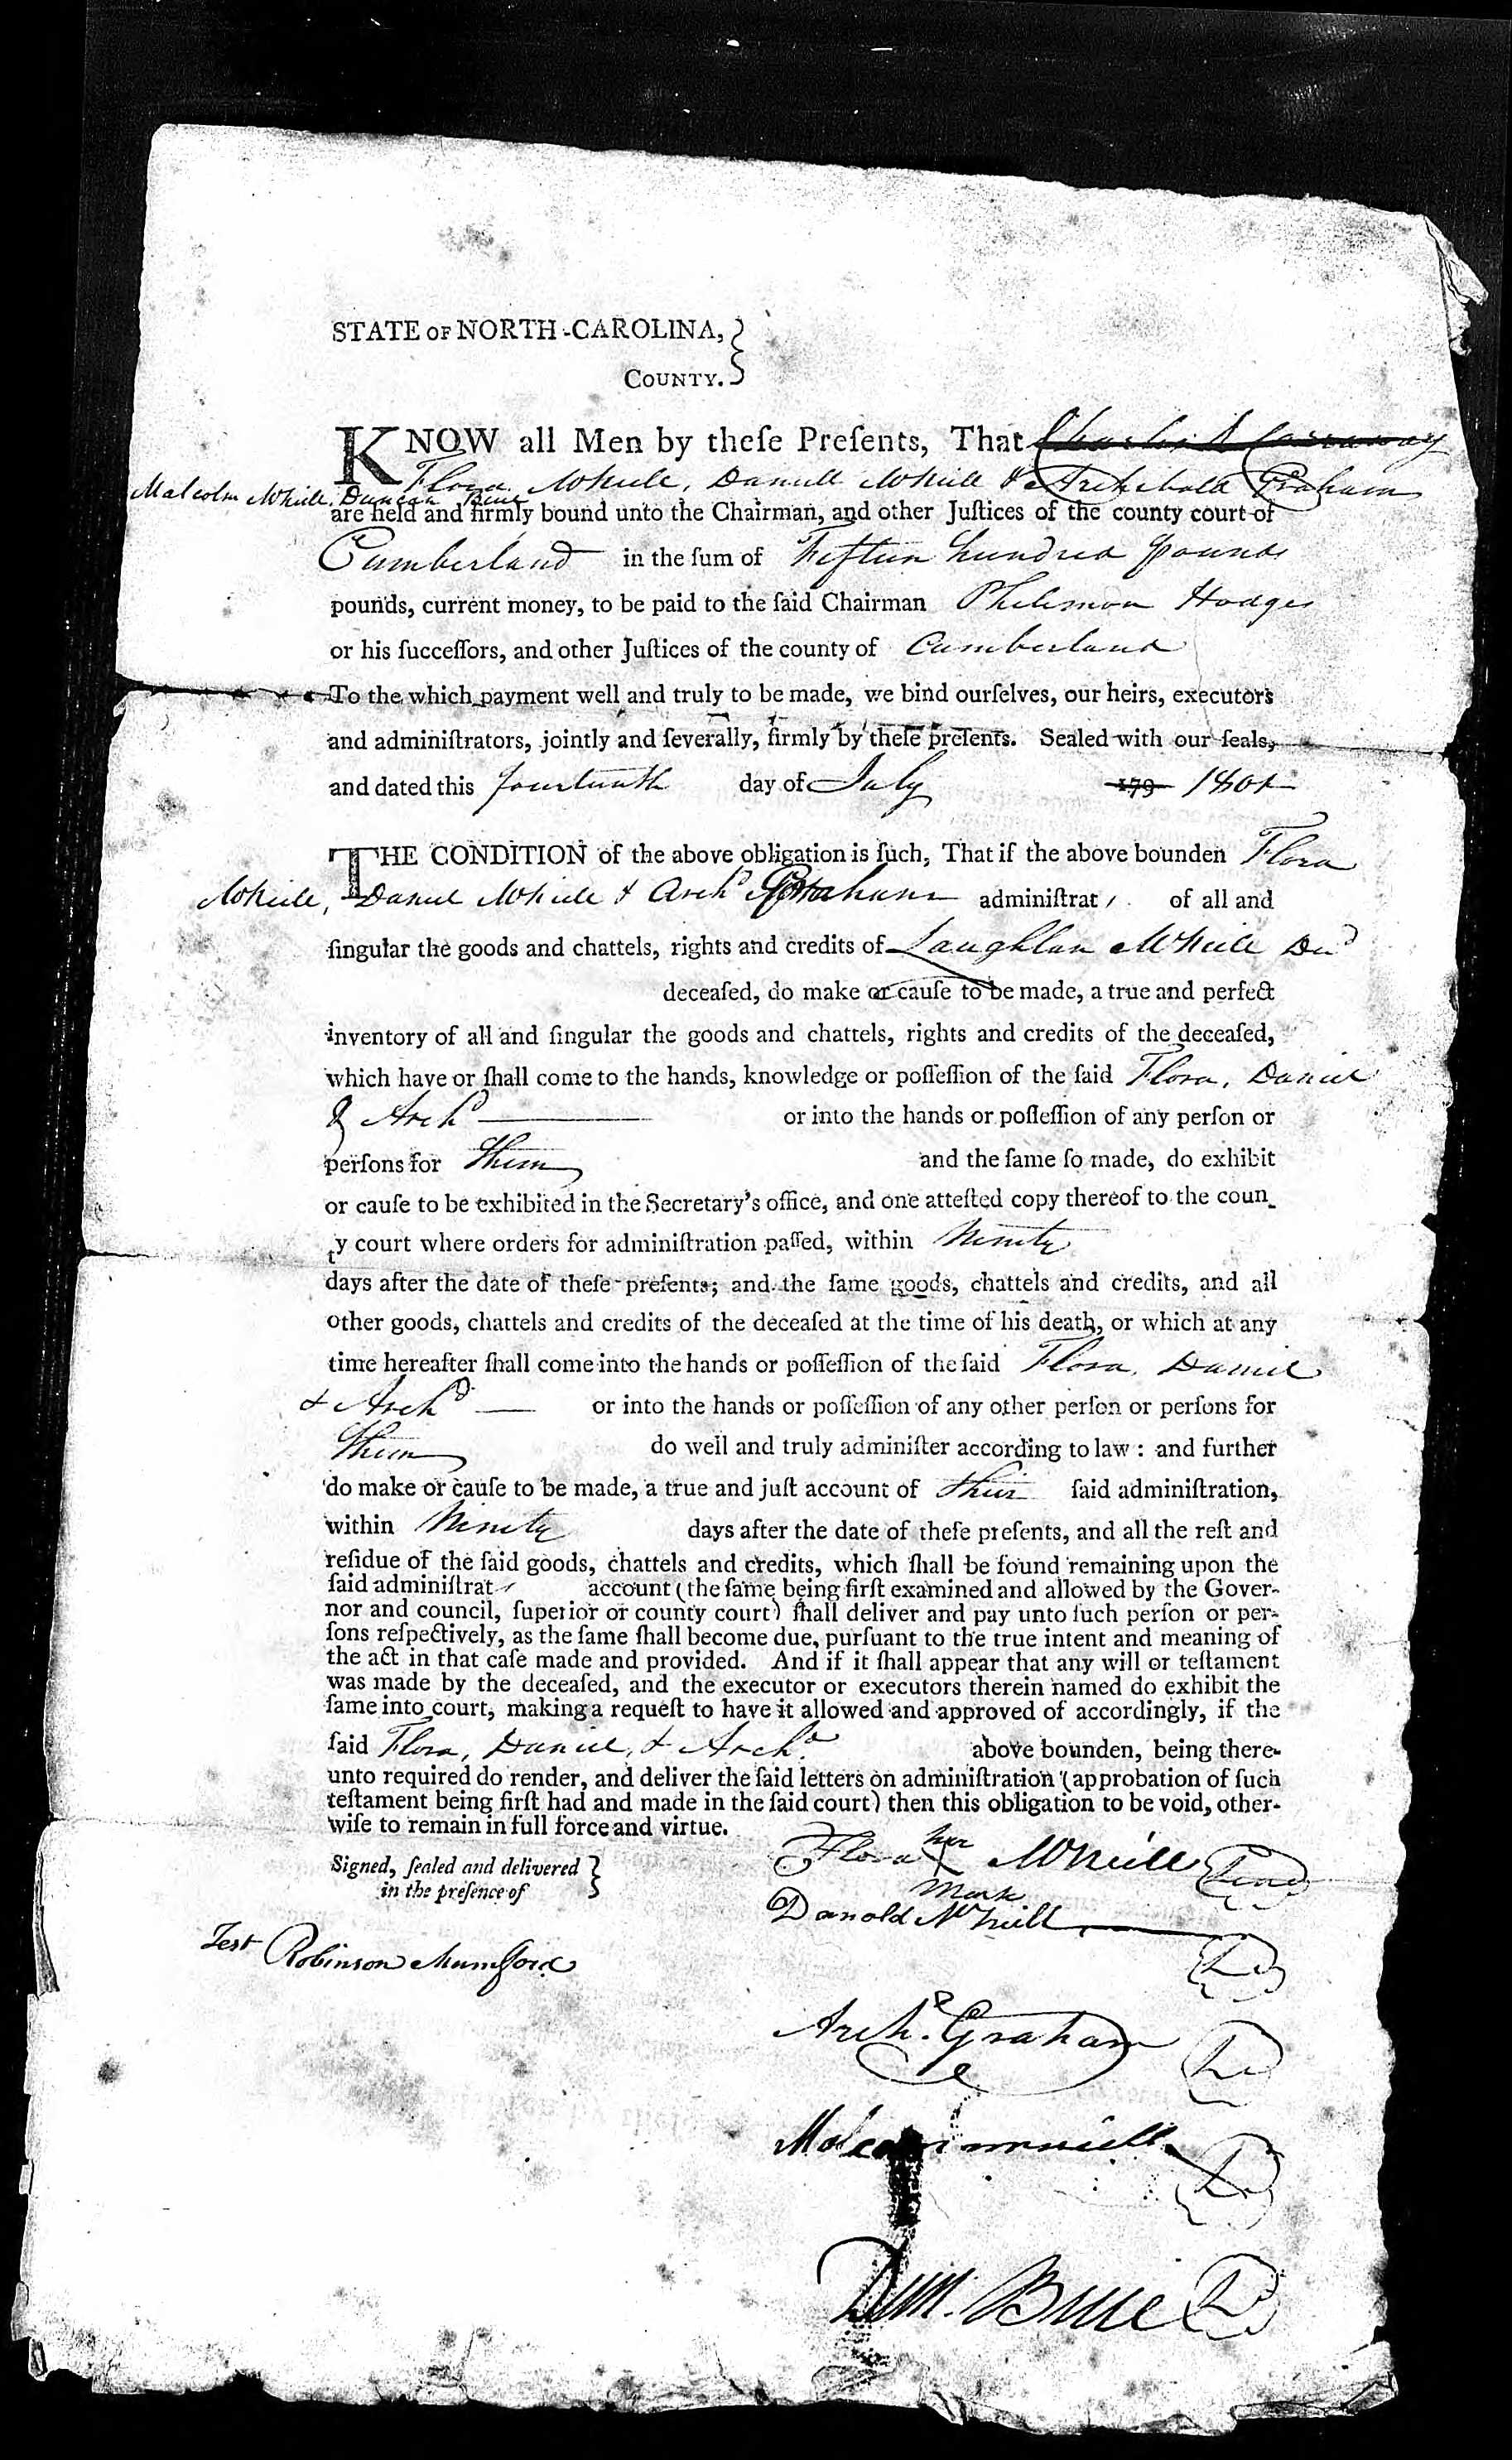 STATE OF NORTH-CAROLINA,
COUNTY.
KNOW all Men by theſe Preſents, That
Flora McNeile, Daniell McNeill & Archibald Graham
Malcolm McNeill, Duncan Buie
are held and firmly bound unto the Chairman, and other Juſtices of the county court of
Cumberland in the ſum of Fifteen hundred pounds
pounds, current money, to be paid to the ſaid Chairman Philemon Hodges
or his ſucceſſors, and other Juſtices of the county of Cumberland
To the which payment well and truly to be made, we bind ourſelves, our heirs, executors
and adminiſtrators, jointly and ſeverally, firmly by theſe preſents. Sealed with our ſeals,
and dated this fourteenth day of July 179 1801
THE CONDITION of the above obligation is ſuch, That if the above bounden Flora
McNeile, Daniel McNeile & Archd Graham adminiſtrat of all and
ſingular the goods and chattels, rights and credits of Laughlan McNeile Decd
deceaſed, do make or cauſe to be made, a true and perfect
inventory of all and ſingular the goods and chattels, rights and credits of the deceaſed,
which have or ſhall come to the hands, knowledge or poſſeſſion of the ſaid Flora, Daniel
& Archd or into the hands or poſſeſſion of any perſon or
perſons for them and the ſame ſo made, do exhibit
or cauſe to be exhibited in the Secretary's office, and one atteſted copy thereof to the coun-
ty court where orders for adminiſtration paſſed, within Ninety
days after the date of theſe preſents; and the ſame goods, chattels and credits, and all
other goods, chattels and credits of the deceaſed at the time of his death, or which at any
time hereafter ſhall come into the hands or poſſeſſion of the ſaid Flora, Daniel
& Archd or into the hands or poſſeſſion of any other perſon or perſons for
them do well and truly adminiſter according to law: and further
do make or cauſe to be made, a true and juſt account of their ſaid adminiſtration,
within Ninety days after the date of theſe preſents, and all the reſt and
reſidue of the ſaid goods, chattels and credits, which ſhall be found remaining upon the
ſaid adminiſtrat account (the ſame being firſt examined and allowed by the Gover-
nor and council, ſuperior or county court) ſhall deliver and pay unto ſuch perſon or per-
ſons reſpectively, as the ſame ſhall become due, purſuant to the true intent and meaning of
the act in that caſe made and provided. And if it ſhall appear that any will or teſtament
was made by the deceaſed, and the executor or executors therein named do exhibit the
ſame into court, making a requeſt to have it allowed and approved of accordingly, if the
ſaid Flora, Daniel, & Archd above bounden, being there-
unto required do render, and deliver the ſaid letters on adminiſtration (approbation of ſuch
teſtament being firſt had and made in the ſaid court) then this obligation to be void, other-
wiſe to remain in full force and virtue.
Signed, ſealed and delivered
in the preſence of
Flora her X mark McNeill
Danold McNeill
Test Robinson Mumford
Archd. Graham
Malcom mcneill
Dun. Buie